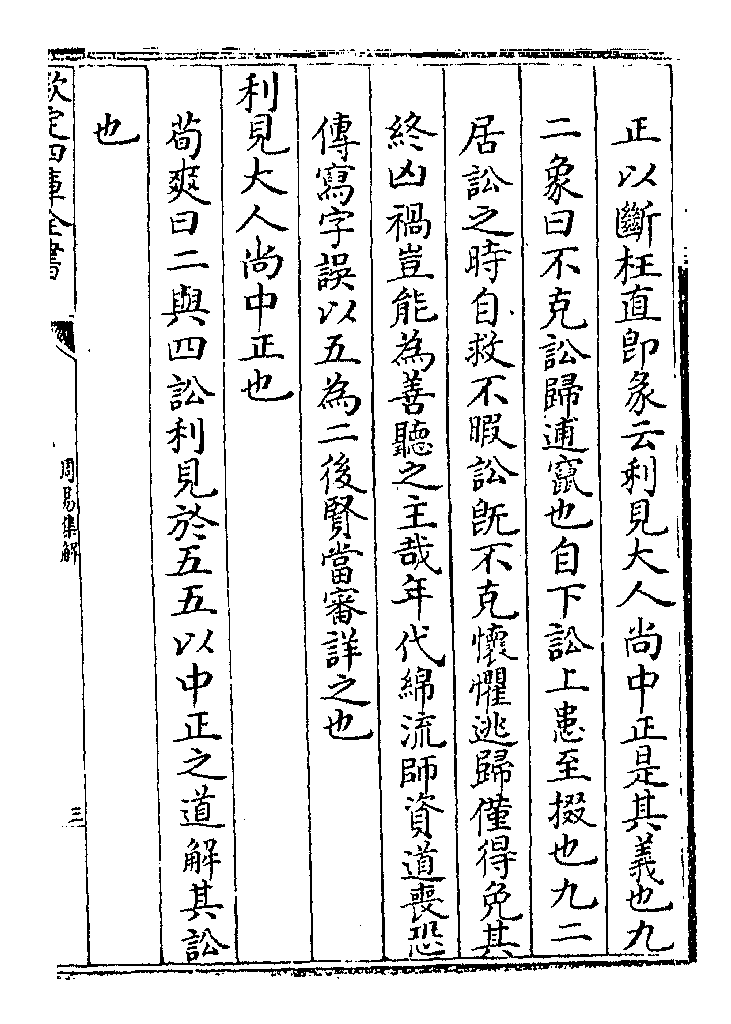 正以斷枉直即彖云利見大人尚中正是其義也九
二象曰不克訟歸逋竄也自下訟上患至掇也九二
居訟之時自救不暇訟旣不克懷懼逃歸僅得免其
終凶禍豈能為善聽之主哉年代綿流師資道喪恐
傳寫字誤以五為二後賢當審詳之也
利見大人尚中正也
荀爽曰二與四訟利見於五五以中正之道解其訟
也
欽定四庫全書
周易集解
三